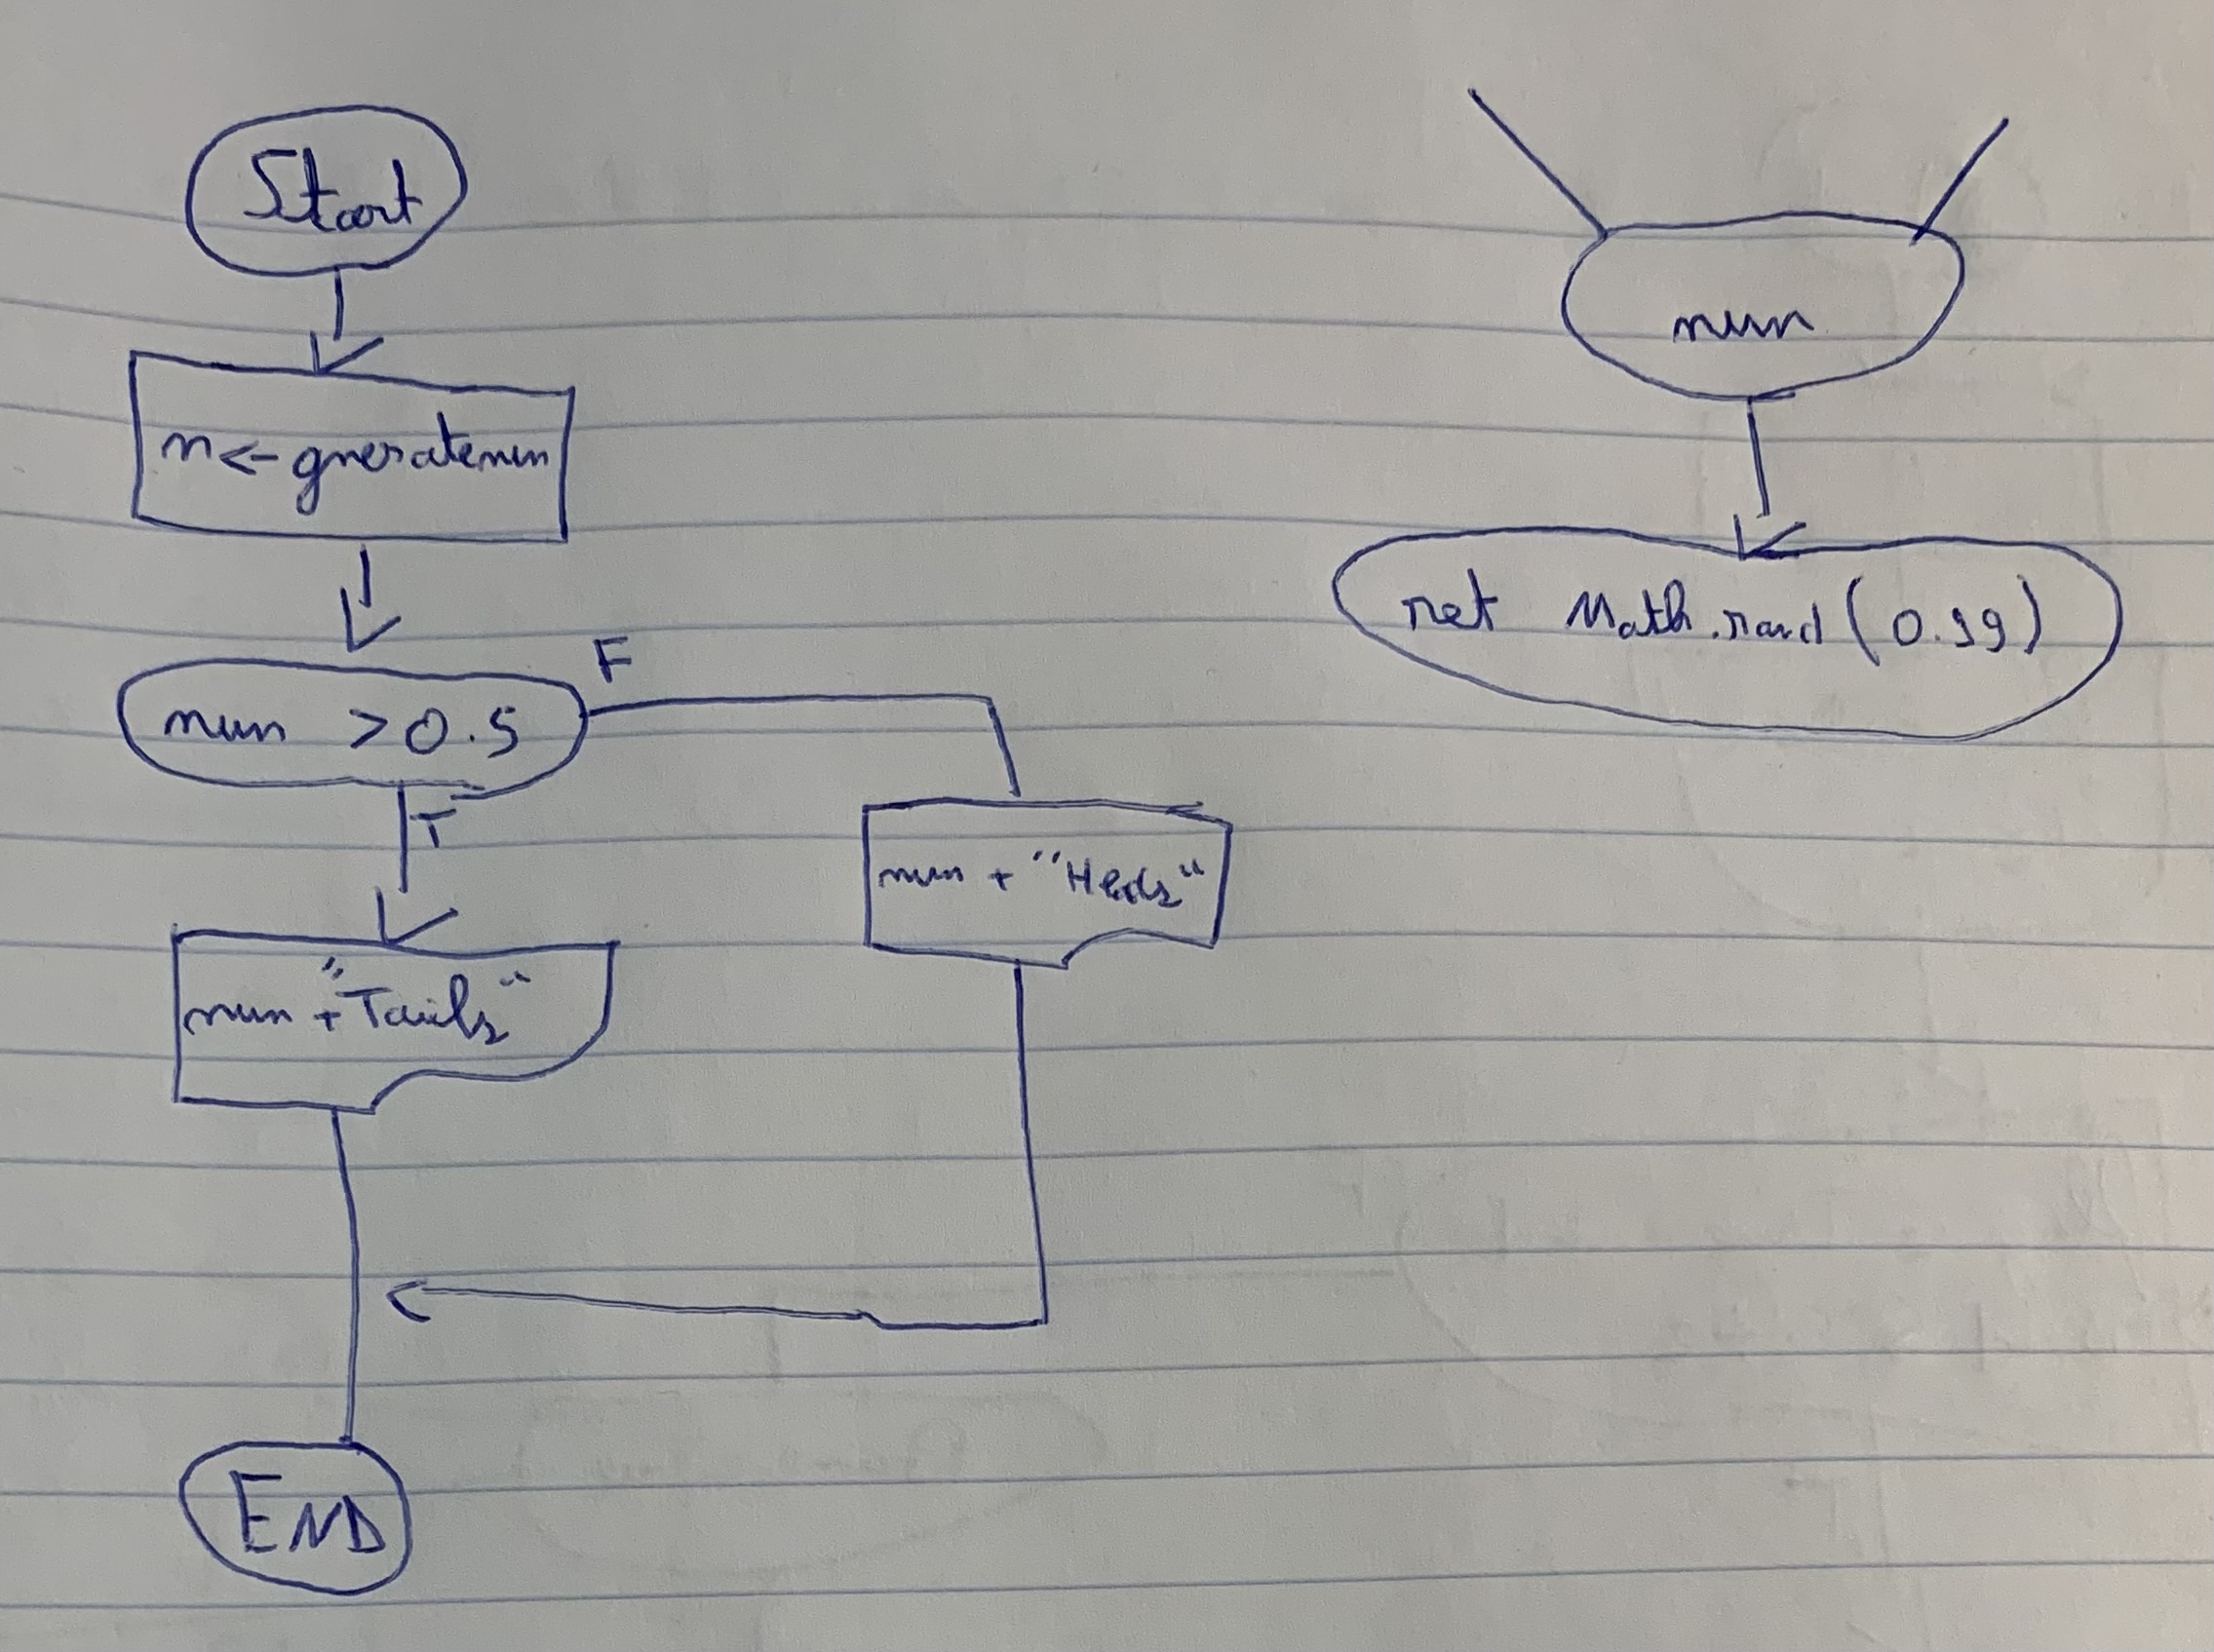 Start
n <- gneratenum
num > 0.5
F
T
num + "Heads"
num + "Tails"
END
num
ret Math.rand (0.99)